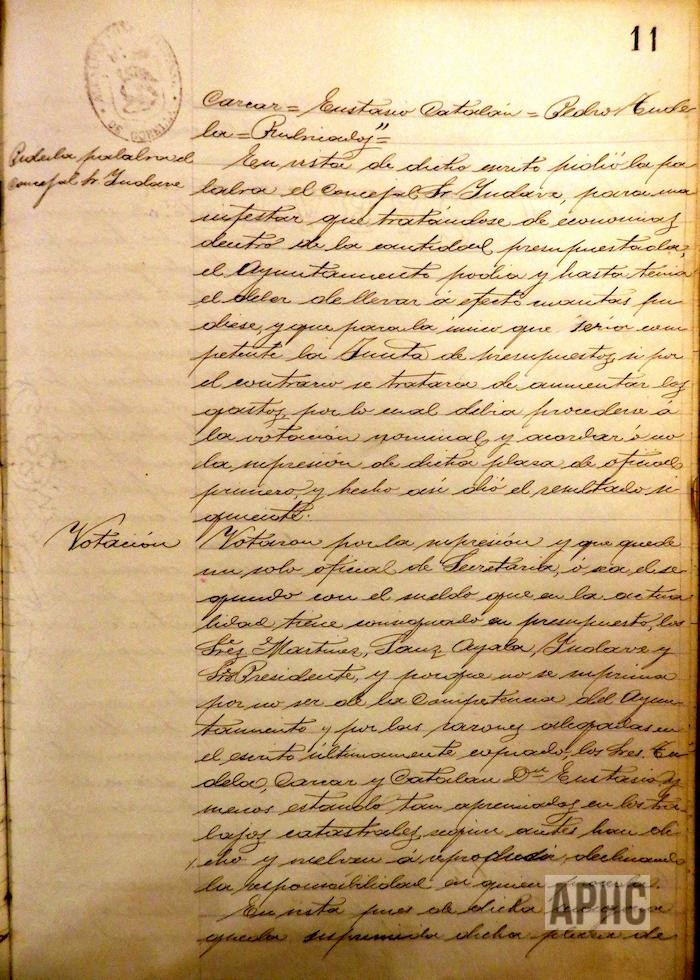 11
AYUNTAMIENTO
DE CORELLA
Carcar = Eustasio Catalán = Pedro Tude
la = Rubricados" =
Pide la palabra el
concejal Sr. Indave
En vista de dicho escrito pidió la pa
labra el Concejal Sr Indave, para ma
nifestar que tratándose de economias
dentro de la cantidad presupuestada,
el Ayuntamiento podia y hasta tenia
el deber de llevar á efecto cuantas pu
diese, y que para lo único que sería com
petente la Junta de presupuestos, si por
el contrario se tratara de aumentar los
gastos, por lo cual debia procederse á
la votación nominal y acordar ó no
la supresión de dicha plaza de oficial
primero, y hecho asi dió el resultado si
guiente.
Votación
Votaron por la supresión y que quede
un solo oficial de Secretaria, ó sea, el se
gundo con el sueldo que en la actua
lidad tiene consignado en presupuesto, los
Sres Martinez, Sanz Ayala, Indave y
Sr Presidente, y porque no se suprima
por no ser de la competencia del Ayun
tamiento y por las razones alegadas en
el escrito últimamente copiado, los Sres. Tu
dela, Carcar y Catalan Dn Eustasio y
menos estando tan apremiados en los tra
bajos catastrales, segun antes han di
cho y vuelven á reproducir, declinando
la responsabilidad en quien proceda.
En vista pues de dicha
queda suprimida dicha plaza de
APHC